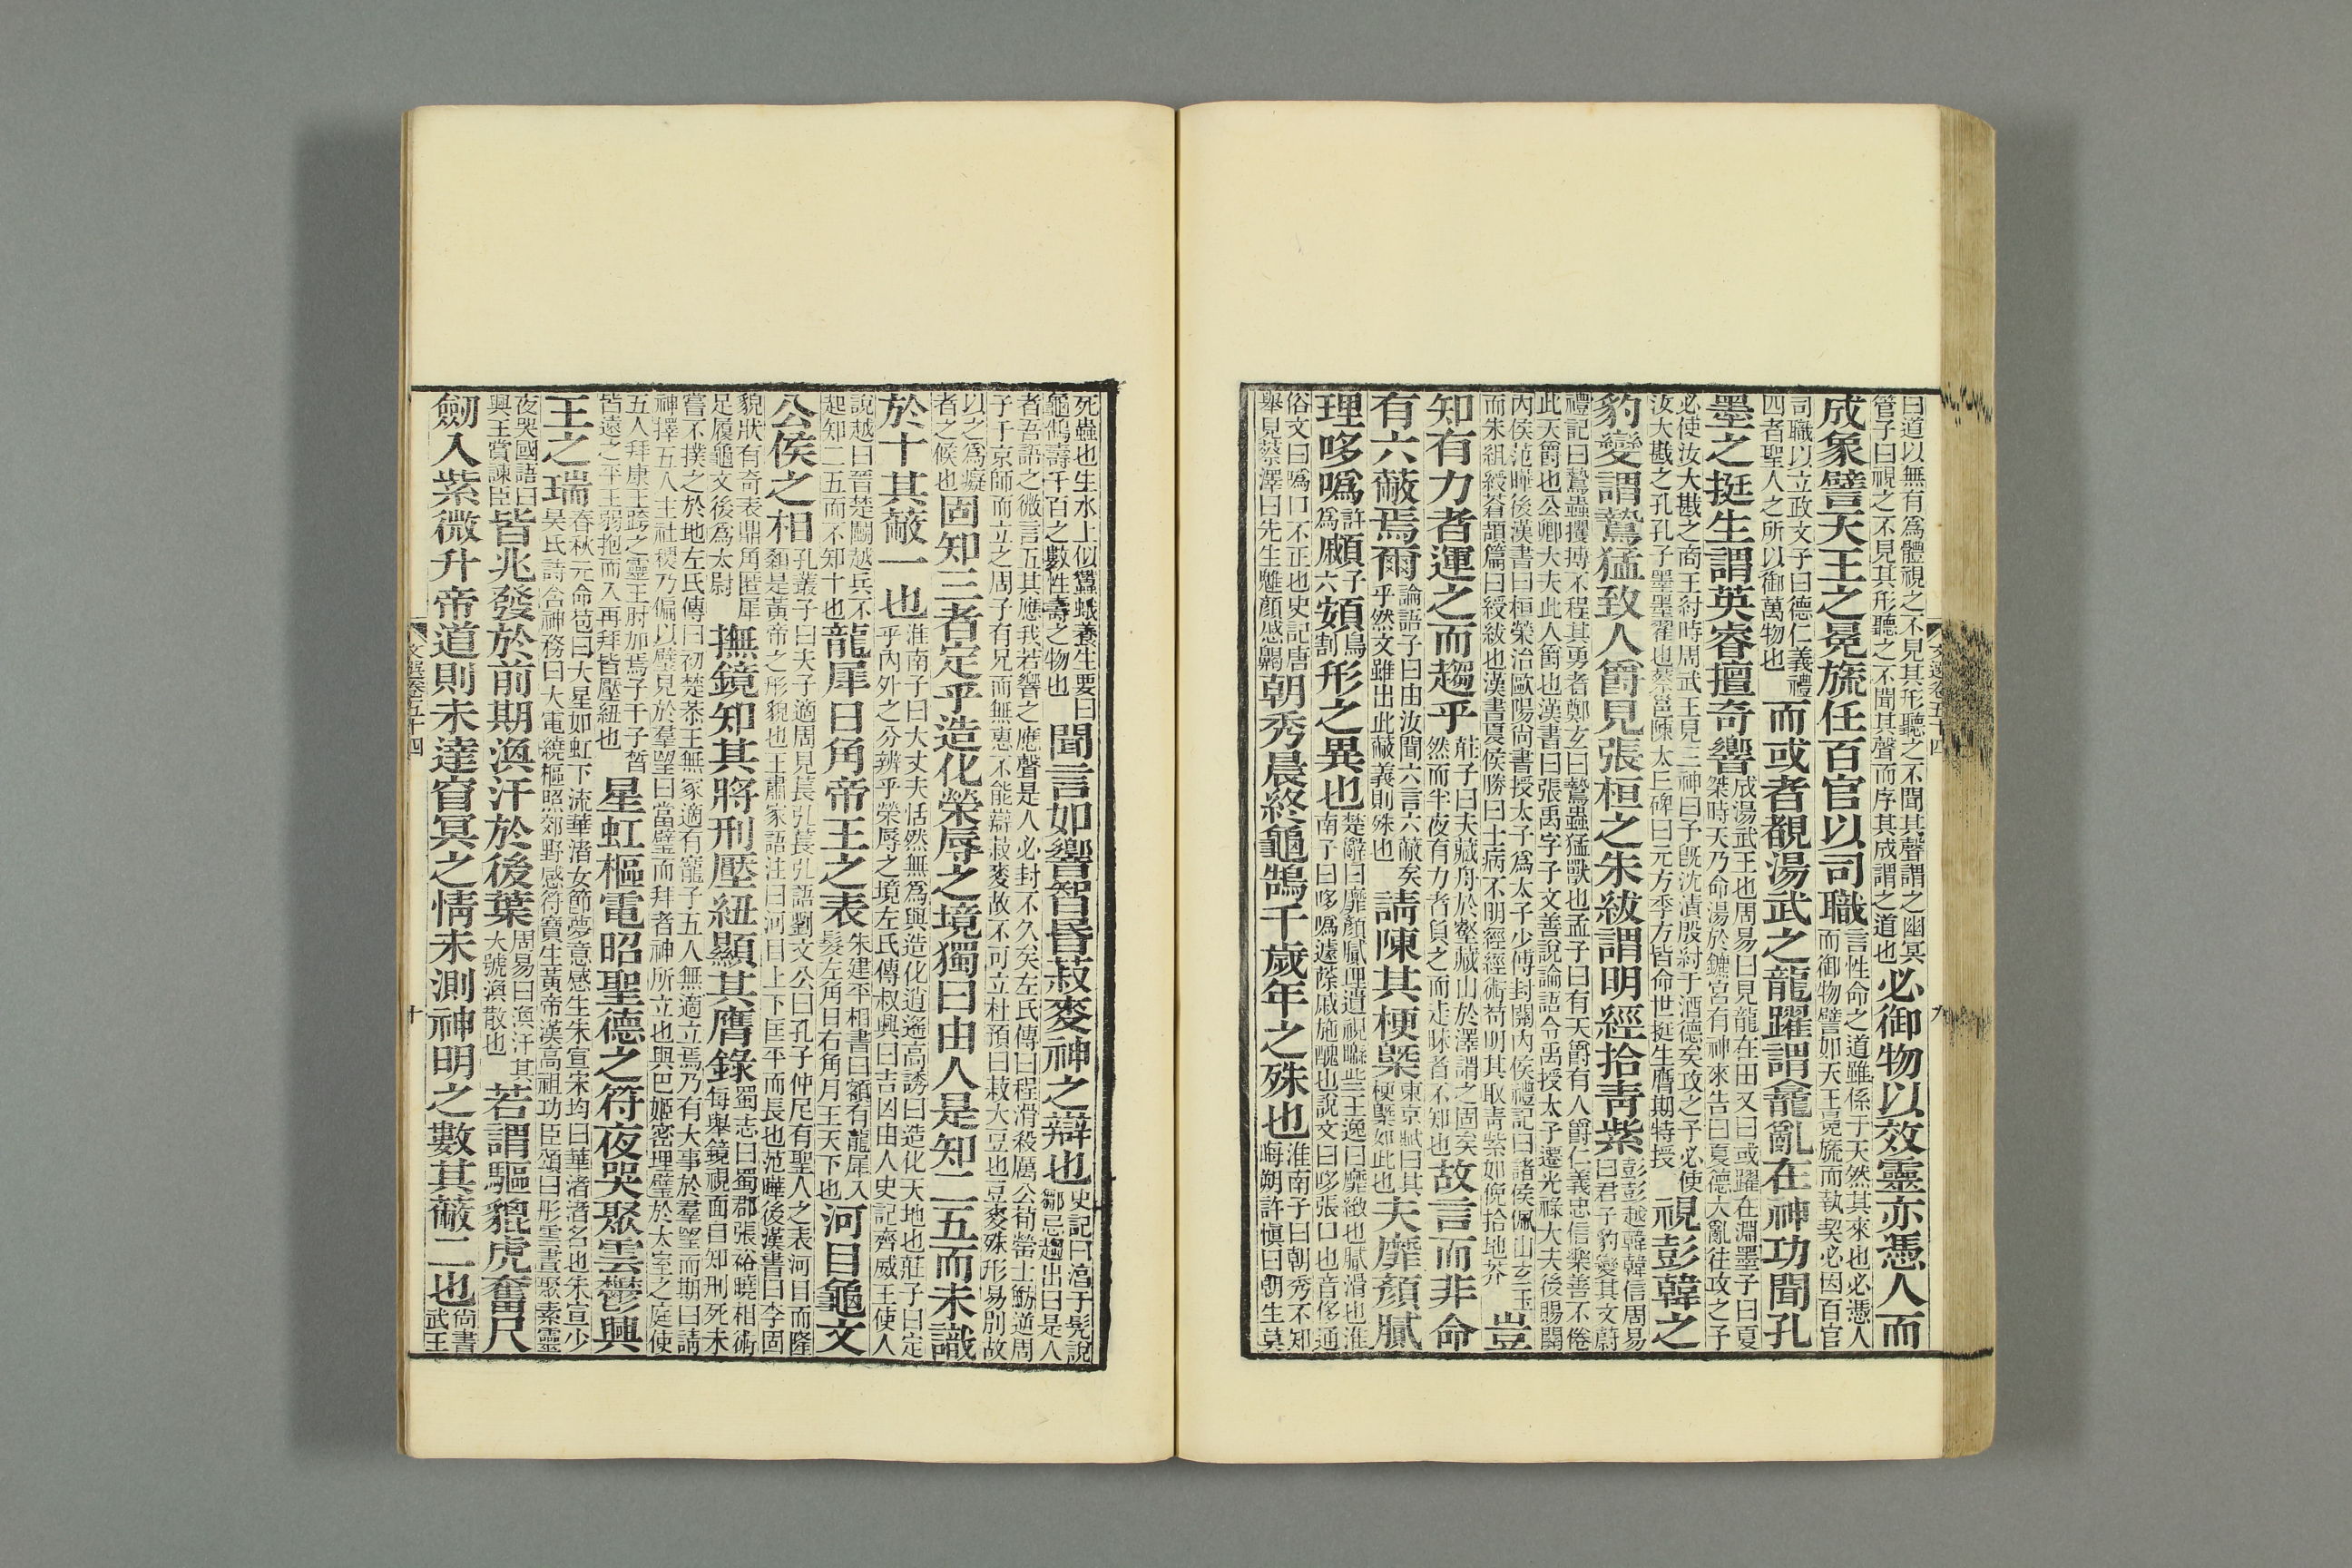 曰道以無有爲體視之不見其形聽之不聞其聲謂之幽冥
管子曰視之不見其形聽之不聞其聲而序其成謂之道也
必御物以效靈亦憑人而
成象譬天王之冕旒任百官以司職
言性命之道雖係于天然其來也必憑人
而御物譬如天王冕旒而執契必因百官
司職以立政文子曰德仁義禮
四者聖人之所以御萬物也
而或者覩湯武之龍躍謂龕亂在神功聞孔
墨之挺生謂英睿擅奇響
成湯武王也周易曰見龍在田又曰或躍在淵墨子曰夏
桀時天乃命湯於鑣宮有神來告曰夏德大亂往攻之予
必使汝大戡之商王紂時周武王見三神曰予旣沈漬殷紂于酒德矣攻之予必使
汝大戡之孔孔子墨墨翟也蔡邕陳太丘碑曰元方季方皆命世挺生膺期特授
視彭韓之
豹變謂鷙猛致人爵見張桓之朱紱謂明經拾靑紫
彭彭越韓韓信周易
曰君子豹變其文蔚
禮記曰鷙蟲攫搏不程其勇者鄭玄曰鷙蟲猛獸也孟子曰有天爵有人爵仁義忠信樂善不倦
此天爵也公卿大夫此人爵也漢書曰張禹字子文善說論語令禹授太子遷光祿大夫後賜關
內侯范曄後漢書曰桓榮治歐陽尚書授太子爲太子少傅封關內侯禮記曰諸侯佩山玄玉
而朱組綬蒼頡篇曰綬紱也漢書夏侯勝曰士病不明經經術苟明其取靑紫如俛拾地芥
豈
知有力者運之而趨乎
莊子曰夫藏舟於壑藏山於澤謂之固矣
然而半夜有力者負之而走昧者不知也
故言而非命
有六蔽焉爾
論語子曰由汝聞六言六蔽矣
乎然文雖出此蔽義則殊也
請陳其梗槩
東京賦曰其
梗槩如此也
夫靡顏膩
理哆噅
許
爲
顣
子
六
頞
烏
割
形之異也
楚辭曰靡顏膩理遺視矊些王逸曰靡緻也膩滑也淮
南子曰哆噅蘧蒢戚施醜也說文曰哆張口也音侈通
俗文曰噅口不正也史記唐
舉見蔡澤曰先生雖顏蹙齃
朝秀晨終龜鵠千歲年之殊也
淮南子曰朝秀不知
晦朔許愼曰朝生莫
死蟲也生水上似蠶蛾養生要曰
龜鵠壽千百之數性壽之物也
聞言如響智昏菽麥神之辯也
史記曰淳于髡說
鄒忌趨出曰是人
者吾語之微言五其應我若響之應聲是人必封不久矣左氏傳曰程滑殺厲公荀罃士魴逆周
子于京師而立之周子有兄而無惠不能辯菽麥故不可立杜預曰菽大豆也豆麥殊形易別故
以之爲癡
者之候也
固知三者定乎造化榮辱之境獨曰由人是知二五而未識
於十其蔽一也
淮南子曰大丈夫恬然無爲與造化逍遙高誘曰造化天地也莊子曰定
乎內外之分辨乎榮辱之境左氏傳叔興曰吉凶由人史記齊威王使人
說越曰晉楚鬭越兵不
起知二五而不知十也
龍犀日角帝王之表
朱建平相書曰額有龍犀入
髮左角日右角月王天下也
河目龜文
公侯之相
孔叢子曰夫子適周見萇弘萇弘語劉文公曰孔子仲尼有聖人之表河目而隆
顙是黃帝之形貌也王肅家語注曰河目上下匡平而長也范曄後漢書曰李固
貌狀有奇表鼎角匿犀
足履龜文後爲太尉
撫鏡知其將刑壓紐顯其膺錄
蜀志曰蜀郡張裕曉相術
每舉鏡視面自知刑死未
嘗不撲之於地左氏傳曰初楚恭王無冢適有寵子五人無適立焉乃有大事於羣望而期曰請
神擇五人主社稷乃徧以璧見於羣望曰當璧而拜者神所立也與巴姬密埋璧於太室之庭使
五人拜康王跨之靈王肘加焉子干子晳
皆遠之平王弱抱而入再拜皆壓紐也
星虹樞電昭聖德之符夜哭聚雲鬱興
王之瑞
春秋元命苞曰大星如虹下流華渚女節夢意感生朱宣宋均曰華渚渚名也朱宣少
昊氏詩含神務曰大電繞樞昭郊野感符寶生黃帝漢高祖功臣頌曰彤雲晝聚素靈
夜哭國語曰
興王賞諫臣
皆兆發於前期渙汗於後葉
周易曰渙汗其
大號渙散也
若謂驅貔虎奮尺
劒入紫微升帝道則未達窅冥之情未測神明之數其蔽二也
尙書
武王
文選卷五十四
十